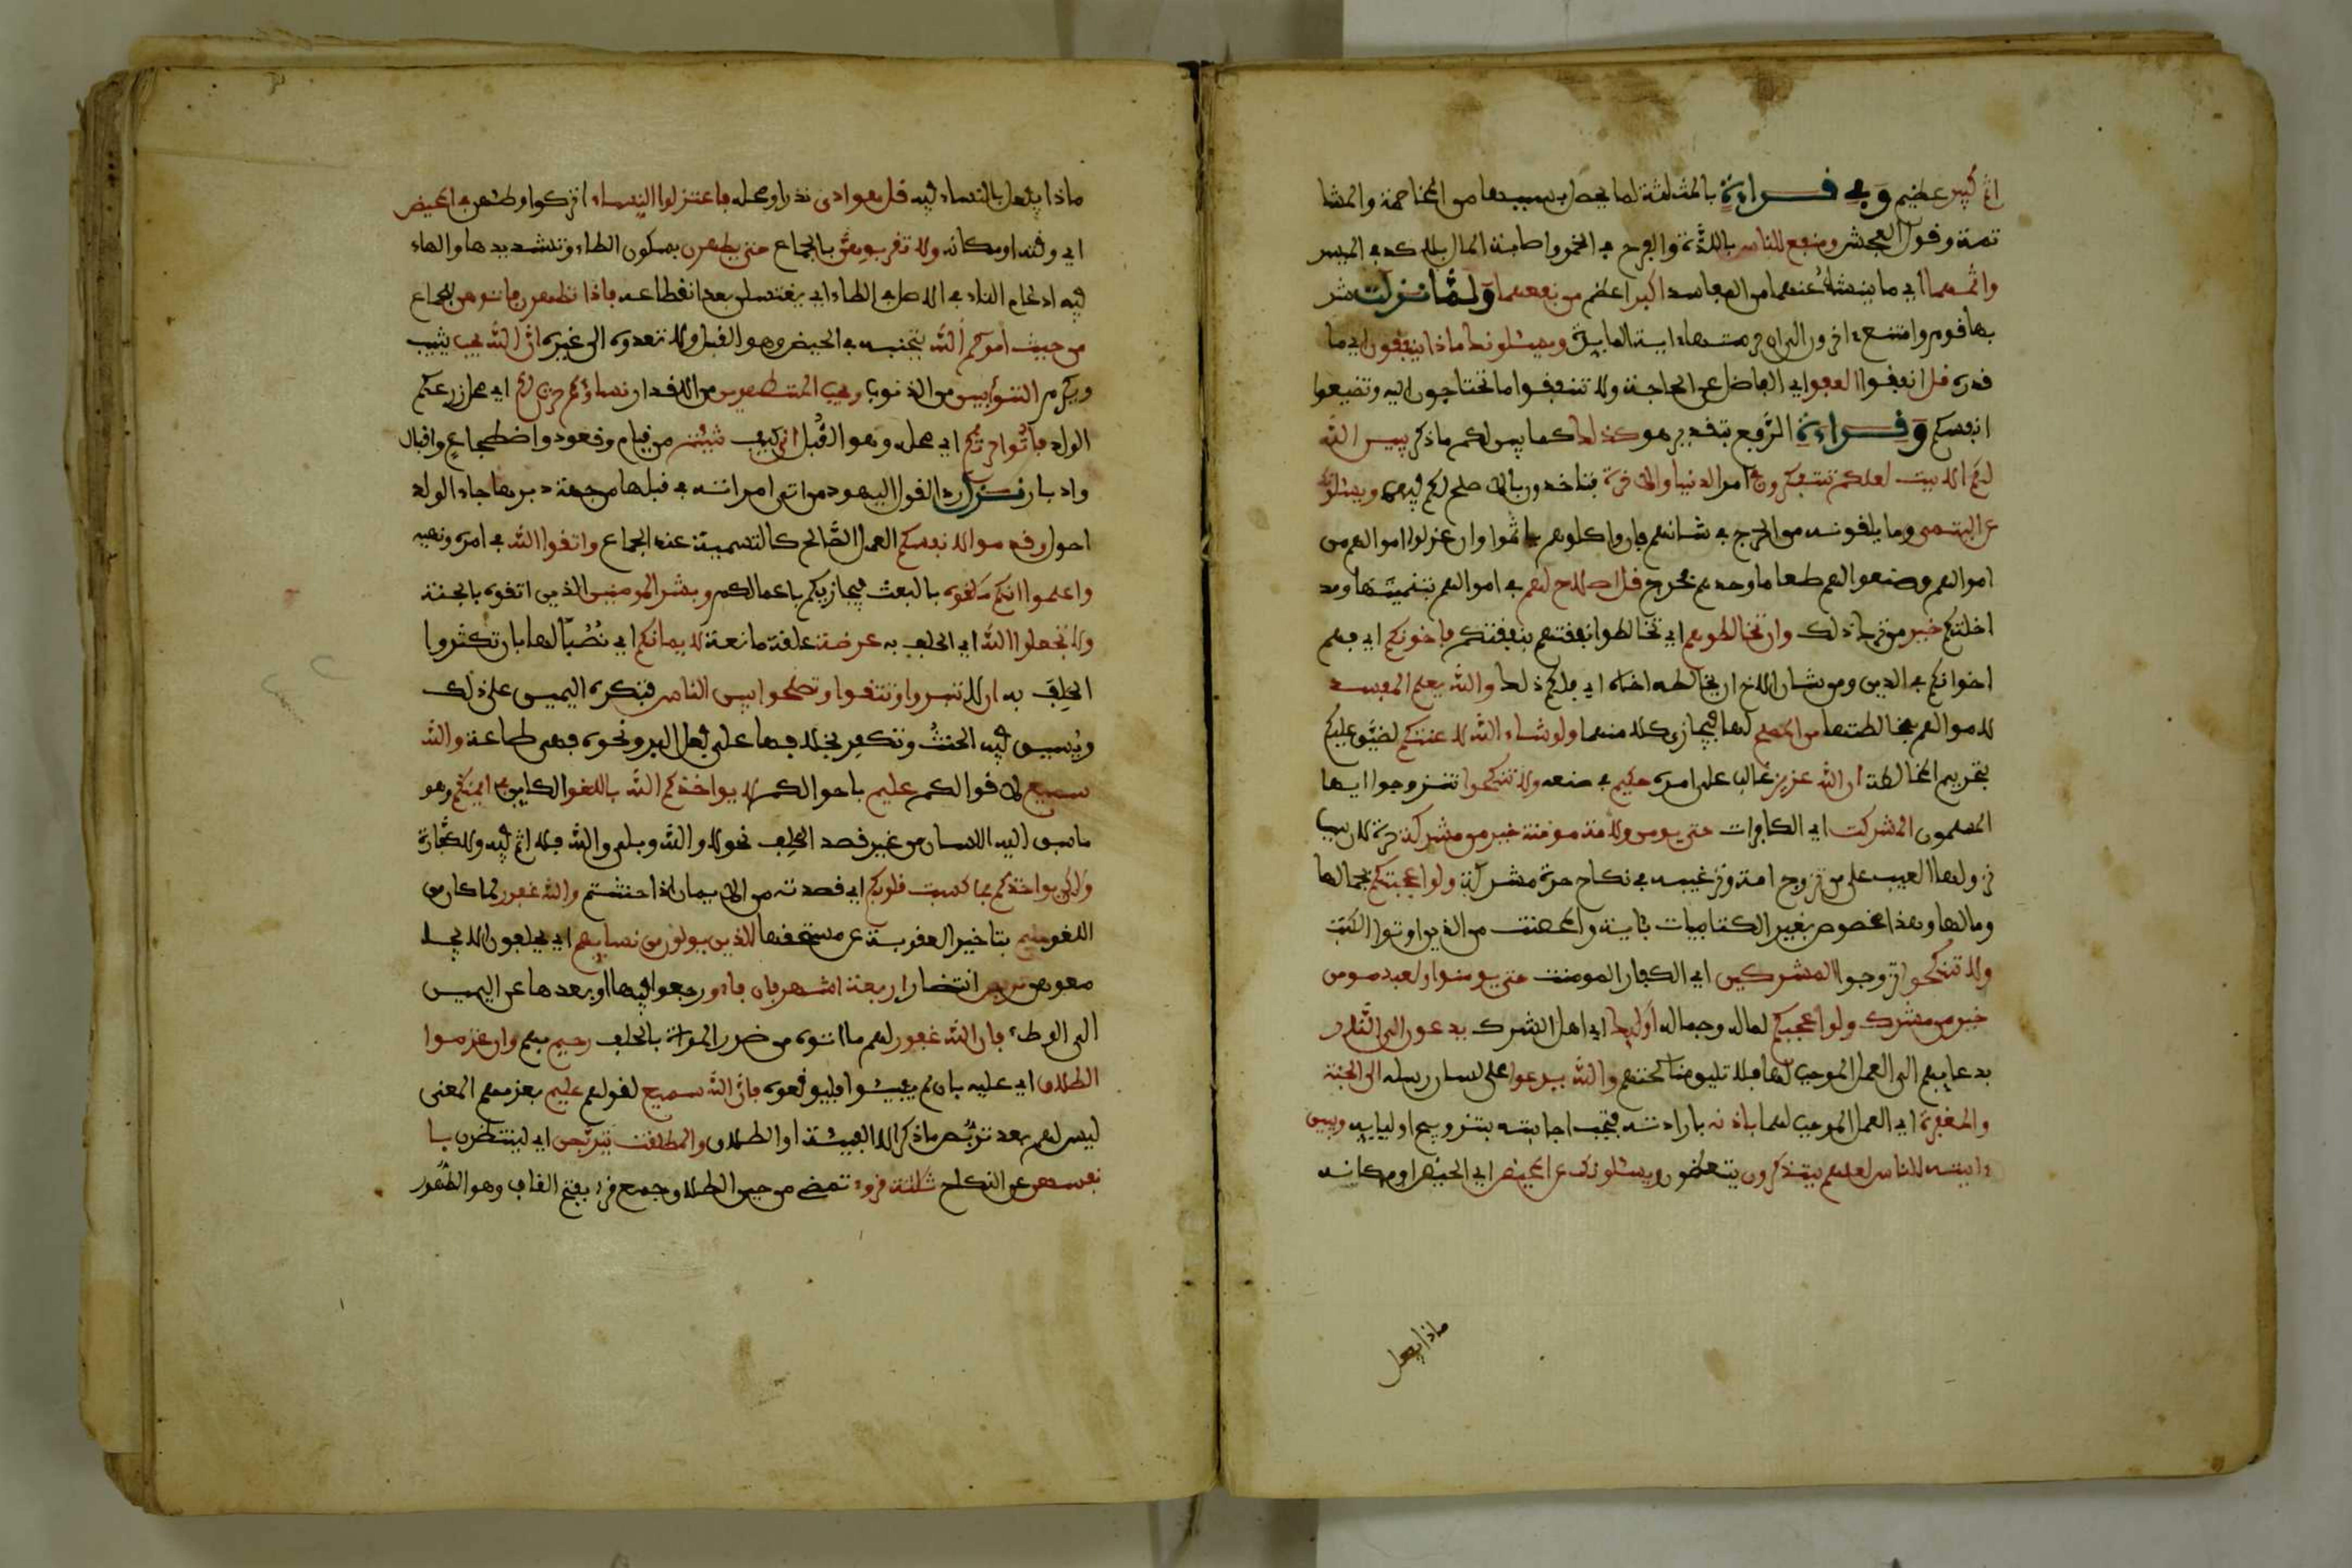 اثم كبير عظيم وفي قراءة بالمثلثة لما يحصل بسببهما من المخاصمة والمشا
تمة وقول الفحش ومنفع للناس باللذة والفرح في الخمر واصابة المال بلا كد في الميسر
واثمهما اي ما ينشأ عنهما من المفاسد اكبر اعظم من نفعهما ولما نزلت شر
بها قوم وامتنع اخرون الى ان حرمتها اية المايدة ويسئلونك ماذا ينفقون اي ما
قدره قل انفقوا العفو اي الفاضل عن الحاجة ولا تنفقوا ما تحتاجون اليه وتضيعوا
انفسكم وفي قراءة الرفع بتقدير هو كذلك كما بين لكم ما ذكر يبين الله
لكم الايت لعلكم تتفكرون في امر الدنيا والاخرة فتاخذون بالاصلح لكم فيهما ويسئلونك
عن اليتمى وما يلقونه من الحرج في شانهم فان واكلوهم ياثموا وان عزلوا اموالهم من
اموالهم وصنعوا لهم طعاما وحدهم فحرج قل اصلاح لهم في اموالهم بتنميتها ومد
اخلتكم خير من ترك ذلك وان تخالطوهم اي تخالطوا نفقتهم بنفقتكم فاخونكم اي فهم
اخوانكم في الدين ومن شان الاخ ان يخالط اخاه اي فلكم ذلك والله يعلم المفسد
لاموالهم بمخالطتها من المصلح لها فيجازي كلا منهما ولو شاء الله لاعنتكم لضيق عليكم
بتحريم المخالطة ان الله عزيز غالب على امره حكيم في صنعه ولا تنكحوا تتزوجوا ايها
المسلمون المشركت اي الكافرات حتى يومن ولامة مومنة خير من مشركة حرة لان سبب
نزولها العيب على من تزوج امة وترغيبه في نكاح حرة مشركة ولو اعجبتكم بجمالها
ومالها وهذا مخصوص بغير الكتابيات باية والمحصنت من الذين اوتوا الكتب
ولا تنكحوا تزوجوا المشركين اي الكفار المومنت حتى يومنوا ولعبد مومن
خير من مشرك ولو اعجبكم لماله وجماله اوليك اي اهل الشرك يدعون الى النار
بدعايهم الى العمل الموجب لها فلا تليق مناكحتهم والله يدعوا على لسان رسله الى الجنة
والمغفرة اي العمل الموجب لهما باذنه بارادته فتجب اجابته بتزويج اوليايه ويبين
ءايته للناس لعلهم يتذكرون يتعظون ويسئلونك عن المحيض اي الحيض او مكانه
ماذا يفعل
ماذا يفعل بالنساء فيه قل هو اذى قذر او محله فاعتزلوا النساء اتركوا وطئهن في المحيض
اي وقته او مكانه ولا تقربوهن بالجماع حتى يطهرن بسكون الطاء وتشديدها والهاء
فيه ادغام التاء في الاصل في الطاء اي يغتسلن بعد انقطاعه فاذا تطهرن فاتوهن للجماع
من حيث امركم الله بتجنبه في الحيض وهو القبل ولا تعدوه الى غيره ان الله يحب يثيب
ويكرم التوابين من الذنوب ويحب المتطهرين من الاقذار نساؤكم حرث لكم اي محل زرعكم
الولد فاتوا حرثكم اي محله وهو القبل انى كيف شئتم من قيام وقعود واضطجاع واقبال
وادبار نزل ردا لقول اليهود من اتى امراته في قبلها من جهة دبرها جاء الولد
احول وقدموا لانفسكم العمل الصالح كالتسمية عند الجماع واتقوا الله في امره ونهيه
واعلموا انكم ملقوه بالبعث فيجازيكم باعمالكم وبشر المومنين الذين اتقوه بالجنة
ولا تجعلوا الله اي الحلف به عرضة علة مانعة لايمانكم اي نصبا لها بان تكثروا
الحلف به ان لا تبروا وتتقوا وتصلحوا بين الناس فتكره اليمين على ذلك
ويسن فيه الحنث وتكفر بخلافها على فعل البر ونحوه فهي طاعة والله
سميع لاقوالكم عليم باحوالكم لا يواخذكم الله باللغو الكاين في ايمنكم وهو
ما سبق اليه اللسان من غير قصد الحلف نحو لا والله وبلى والله فلا اثم فيه ولا كفارة
ولكن يواخذكم بما كسبت قلوبكم اي قصدته من الايمان اذا حنثتم والله غفور لما كان من
اللغو حليم بتاخير العقوبة عن مستحقها للذين يولون من نسايهم اي يحلفون ان لا يجا
معوهن تربص انتضار اربعة اشهر فان فاءو رجعوا فيها او بعدها عن اليمين
الى الوطء فان الله غفور لهم ما اتوه من ضرر المراة بالحلف رحيم بهم وان عزموا
الطلاق اي عليه بان لم يفيئوا فليوقعوه فان الله سميع لقولهم عليم بعزمهم المعنى
ليس لهم بعد تربص ما ذكر الا الفيئة او الطلاق والمطلقت يتربصن اي لينتظرن با
نفسهن عن النكاح ثلثة قروء تمضي من حين الطلاق جمع قرء بفتح القاف وهو الطهر